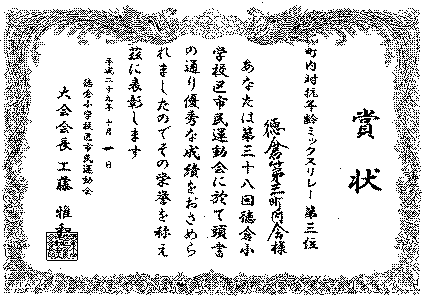 賞状
町内対抗年齢ミックスリレー 第三位
徳倉第三町内会様
あなたは第三十八回徳倉小
学校区市民運動会に於て頭書
の通り優秀な成績をおさめら
れましたのでその栄誉を称え
茲に表彰します
平成二十九年十月一日
徳倉小学校区市民運動会
大会会長 工藤 雅